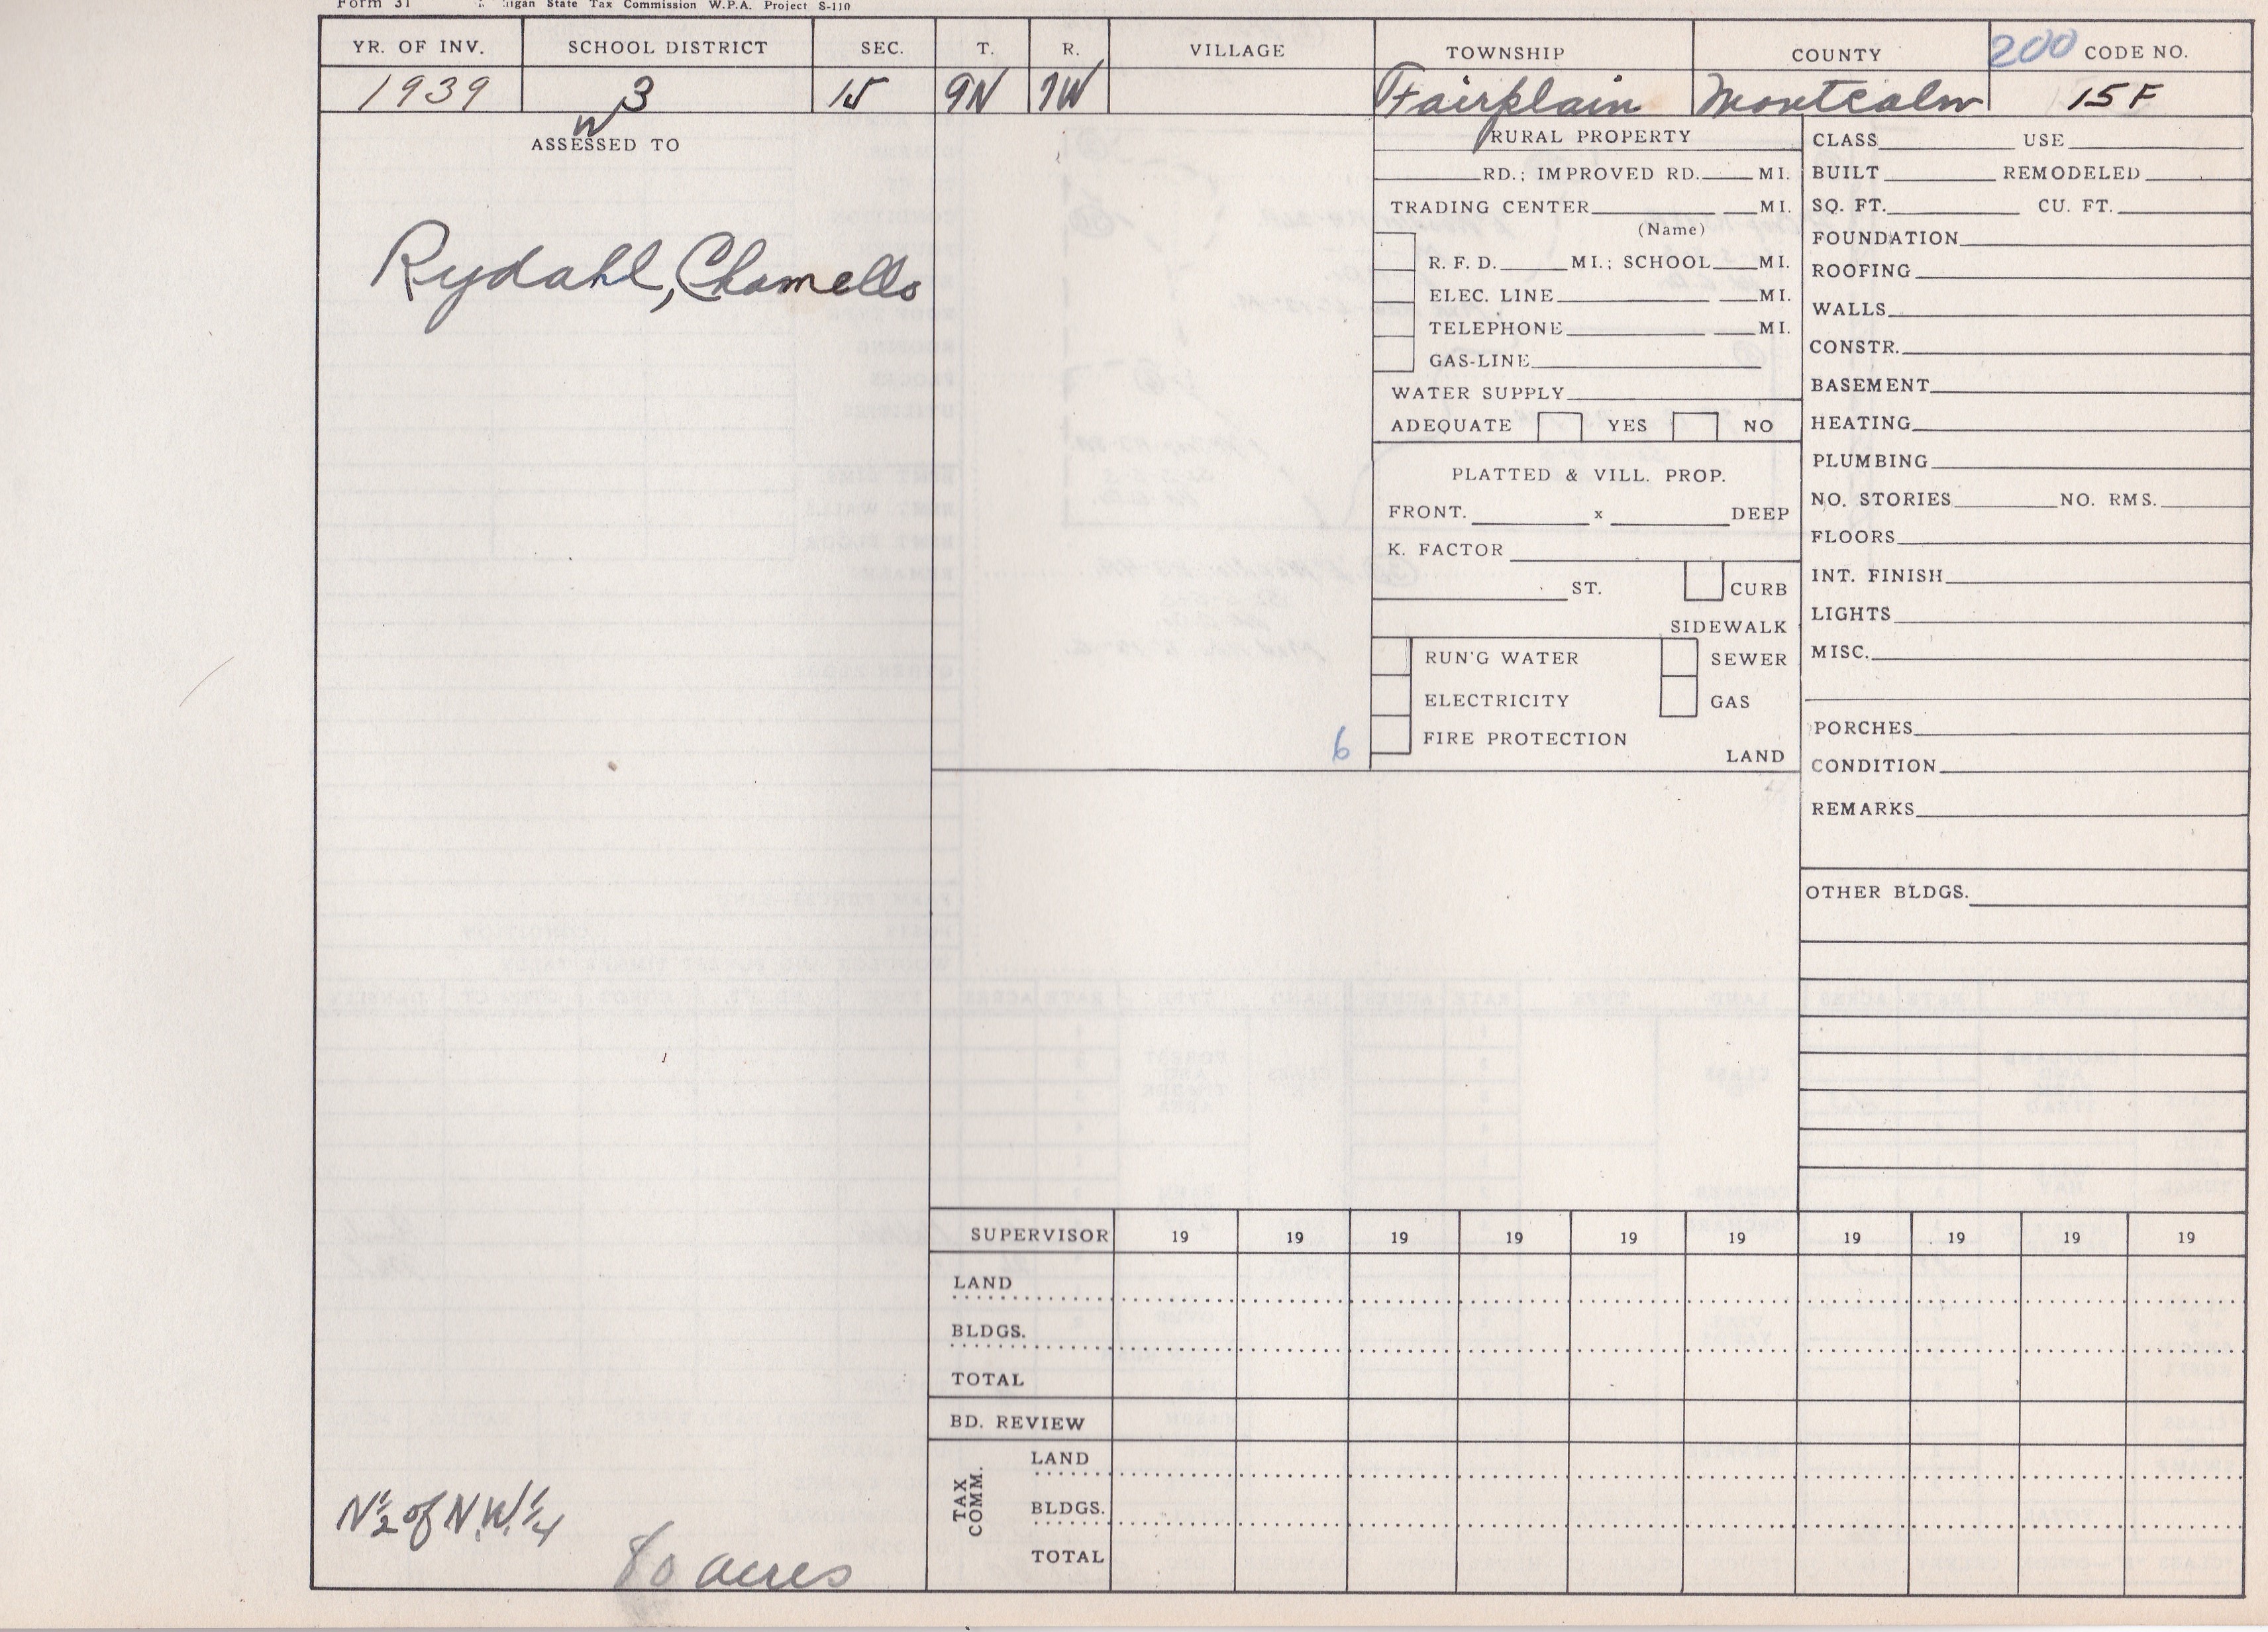 Form 31 igan State Tax Commission W.P.A. Project S-110
YR. OF INV. SCHOOL DISTRICT SEC. T. R. VILLAGE TOWNSHIP COUNTY 200 CODE NO.
1939 3 15 9N 7W Fairplain Montcalm 15F
W
ASSESSED TO
Rydahl,
N 1/2 of N.W. 1/4
80 acres
6
RURAL PROPERTY
RD.; IMPROVED RD. MI.
TRADING CENTER MI.
(Name)
R. F. D. MI.; SCHOOL MI.
ELEC. LINE MI.
TELEPHONE MI.
GAS-LINE
WATER SUPPLY
ADEQUATE YES NO
PLATTED & VILL. PROP.
FRONT. x DEEP
K. FACTOR
ST. CURB
SIDEWALK
RUN'G WATER SEWER
ELECTRICITY GAS
FIRE PROTECTION
LAND
CLASS USE
BUILT REMODELED
SQ. FT. CU. FT.
FOUNDATION
ROOFING
WALLS
CONSTR.
BASEMENT
HEATING
PLUMBING
NO. STORIES NO. RMS.
FLOORS
INT. FINISH
LIGHTS
MISC.
PORCHES
CONDITION
REMARKS
OTHER BLDGS.
SUPERVISOR 19 19 19 19 19 19 19 19 19 19
LAND
BLDGS.
TOTAL
BD. REVIEW
TAX COMM.
LAND
BLDGS.
TOTAL